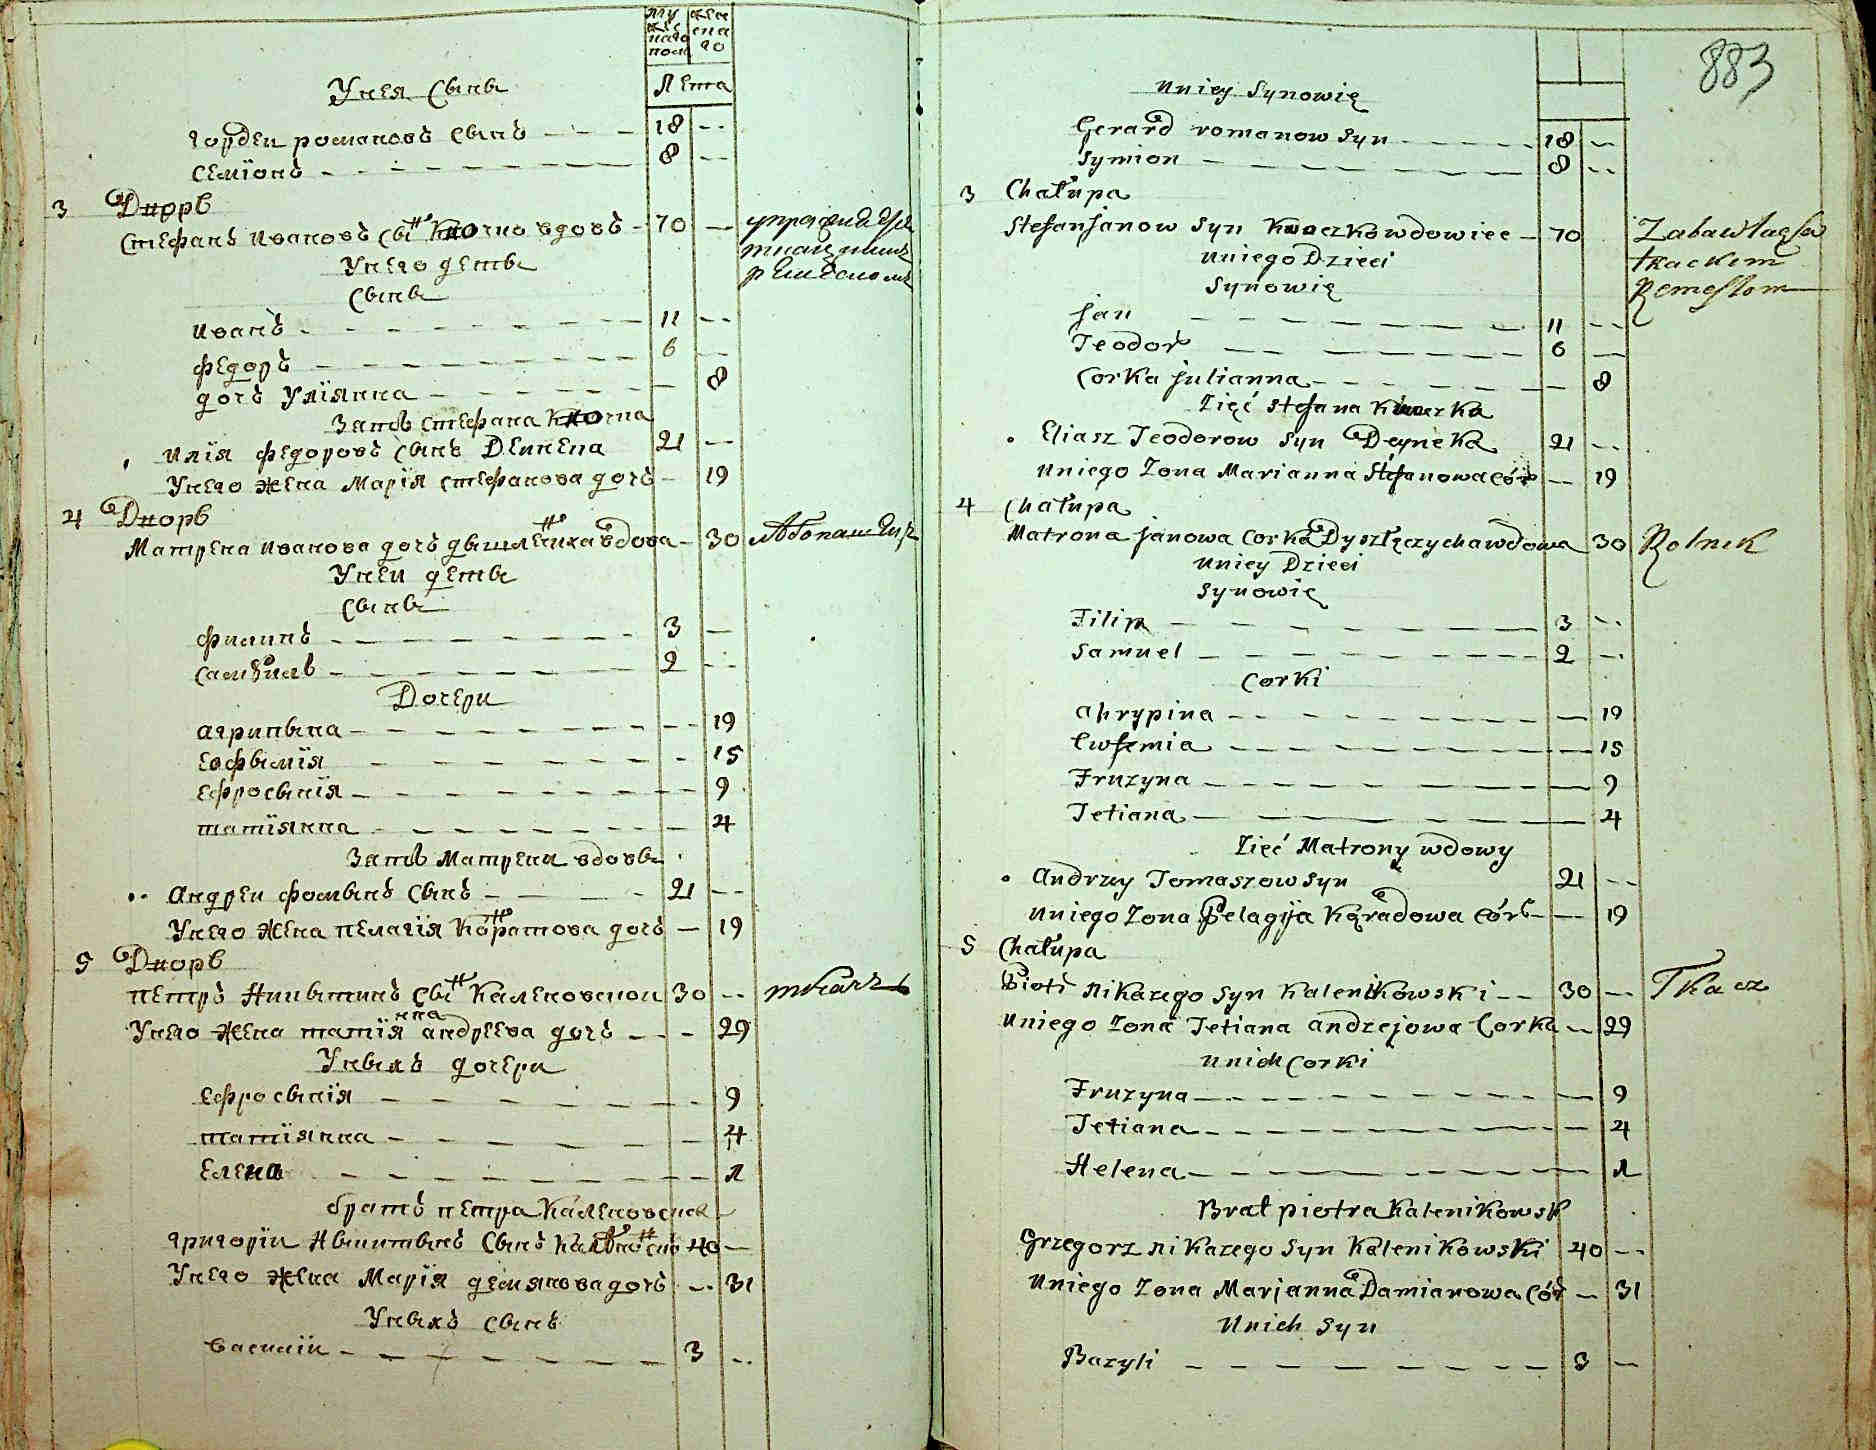 му
же
наго
пола
жен
ена
го
Лета
Унея Сынъ
гордеи романовъ Сынъ 18 --
семїонъ 8 --
3 Дворъ
Стефанъ ивановъ сы н вдовъ 70 --
Унего дети
Сыны
иванъ 11 --
федоръ 6 --
дочь Улїянна -- 8
Зять стефана
илїя федоровъ Сынъ Деинека 21 --
Унего жена Марїя стефанова дочь -- 19
4 Дворъ
Матрена иванова дочь вдова -- 30
Унеи дети
Сыны
филипъ 3 --
самуилъ 2 --
Дочери
агрипына -- 19
Евфымїя -- 15
Ефросынїя -- 9
татїянна -- 4
Зять Матрены вдовы
Андреи фомынъ Сынъ 21 --
Унего жена пелагїя Кодратова дочь -- 19
5 Дворъ
петръ Никытинъ сы н Каленовскои 30 -- ткачъ
Унего жена татїянна андреева дочь -- 29
Уныхъ дочери
Ефросынїя -- 9
татїянна -- 4
Елена -- 1
братъ петра Каленовска
григорїи Никитынъ Сынъ 40 --
Унего жена Марїя демянова дочь -- 31
Уныхъ Сынъ
василїи 3 --
883
Uniey Synowię
Gerard romanow Syn 18 --
Symion 8 --
3 Chałupa
Stefan Janow Syn wdowiec 70 Zabawłaęsa
Uniego Dzieci tkackim
Synowię Remesłom
Jan 11 --
Teodor 6 --
Corka Julianna -- 8
Zięć Stefana
Eliasz Teodorow Syn Deyneka 21 --
Uniego Zona Marianna Stefanowa Cór -- 19
4 Chałupa
Matrona Janowa Corka Dyszlęczycha wdowa 30 Rolnik
Uniey Dzieci
Synowię
Filip 3 --
Samuel 2 --
Corki
Ahrypina -- 19
Ewfemia -- 15
Fruzyna -- 9
Tetiana -- 4
Zięć Matrony wdowy
Andrzey Tomaszow Syn 21 --
Uniego Zona Pelagija Kądradowa Cór -- 19
5 Chałupa
Piotr Nikazego Syn Kalenikowski 30 -- Tkacz
Uniego Zona Tetiana Andrzejowa Corka -- 29
Unich Corki
Fruzyna -- 9
Tetiana -- 4
Helena -- 1
Brat piotra Kalenikowsk
Grzegorz Nikazego Syn Kalenikowski 40 --
Uniego Zona Marjanna Damianowa Cór -- 31
Unich Syn
Bazyli 3 --